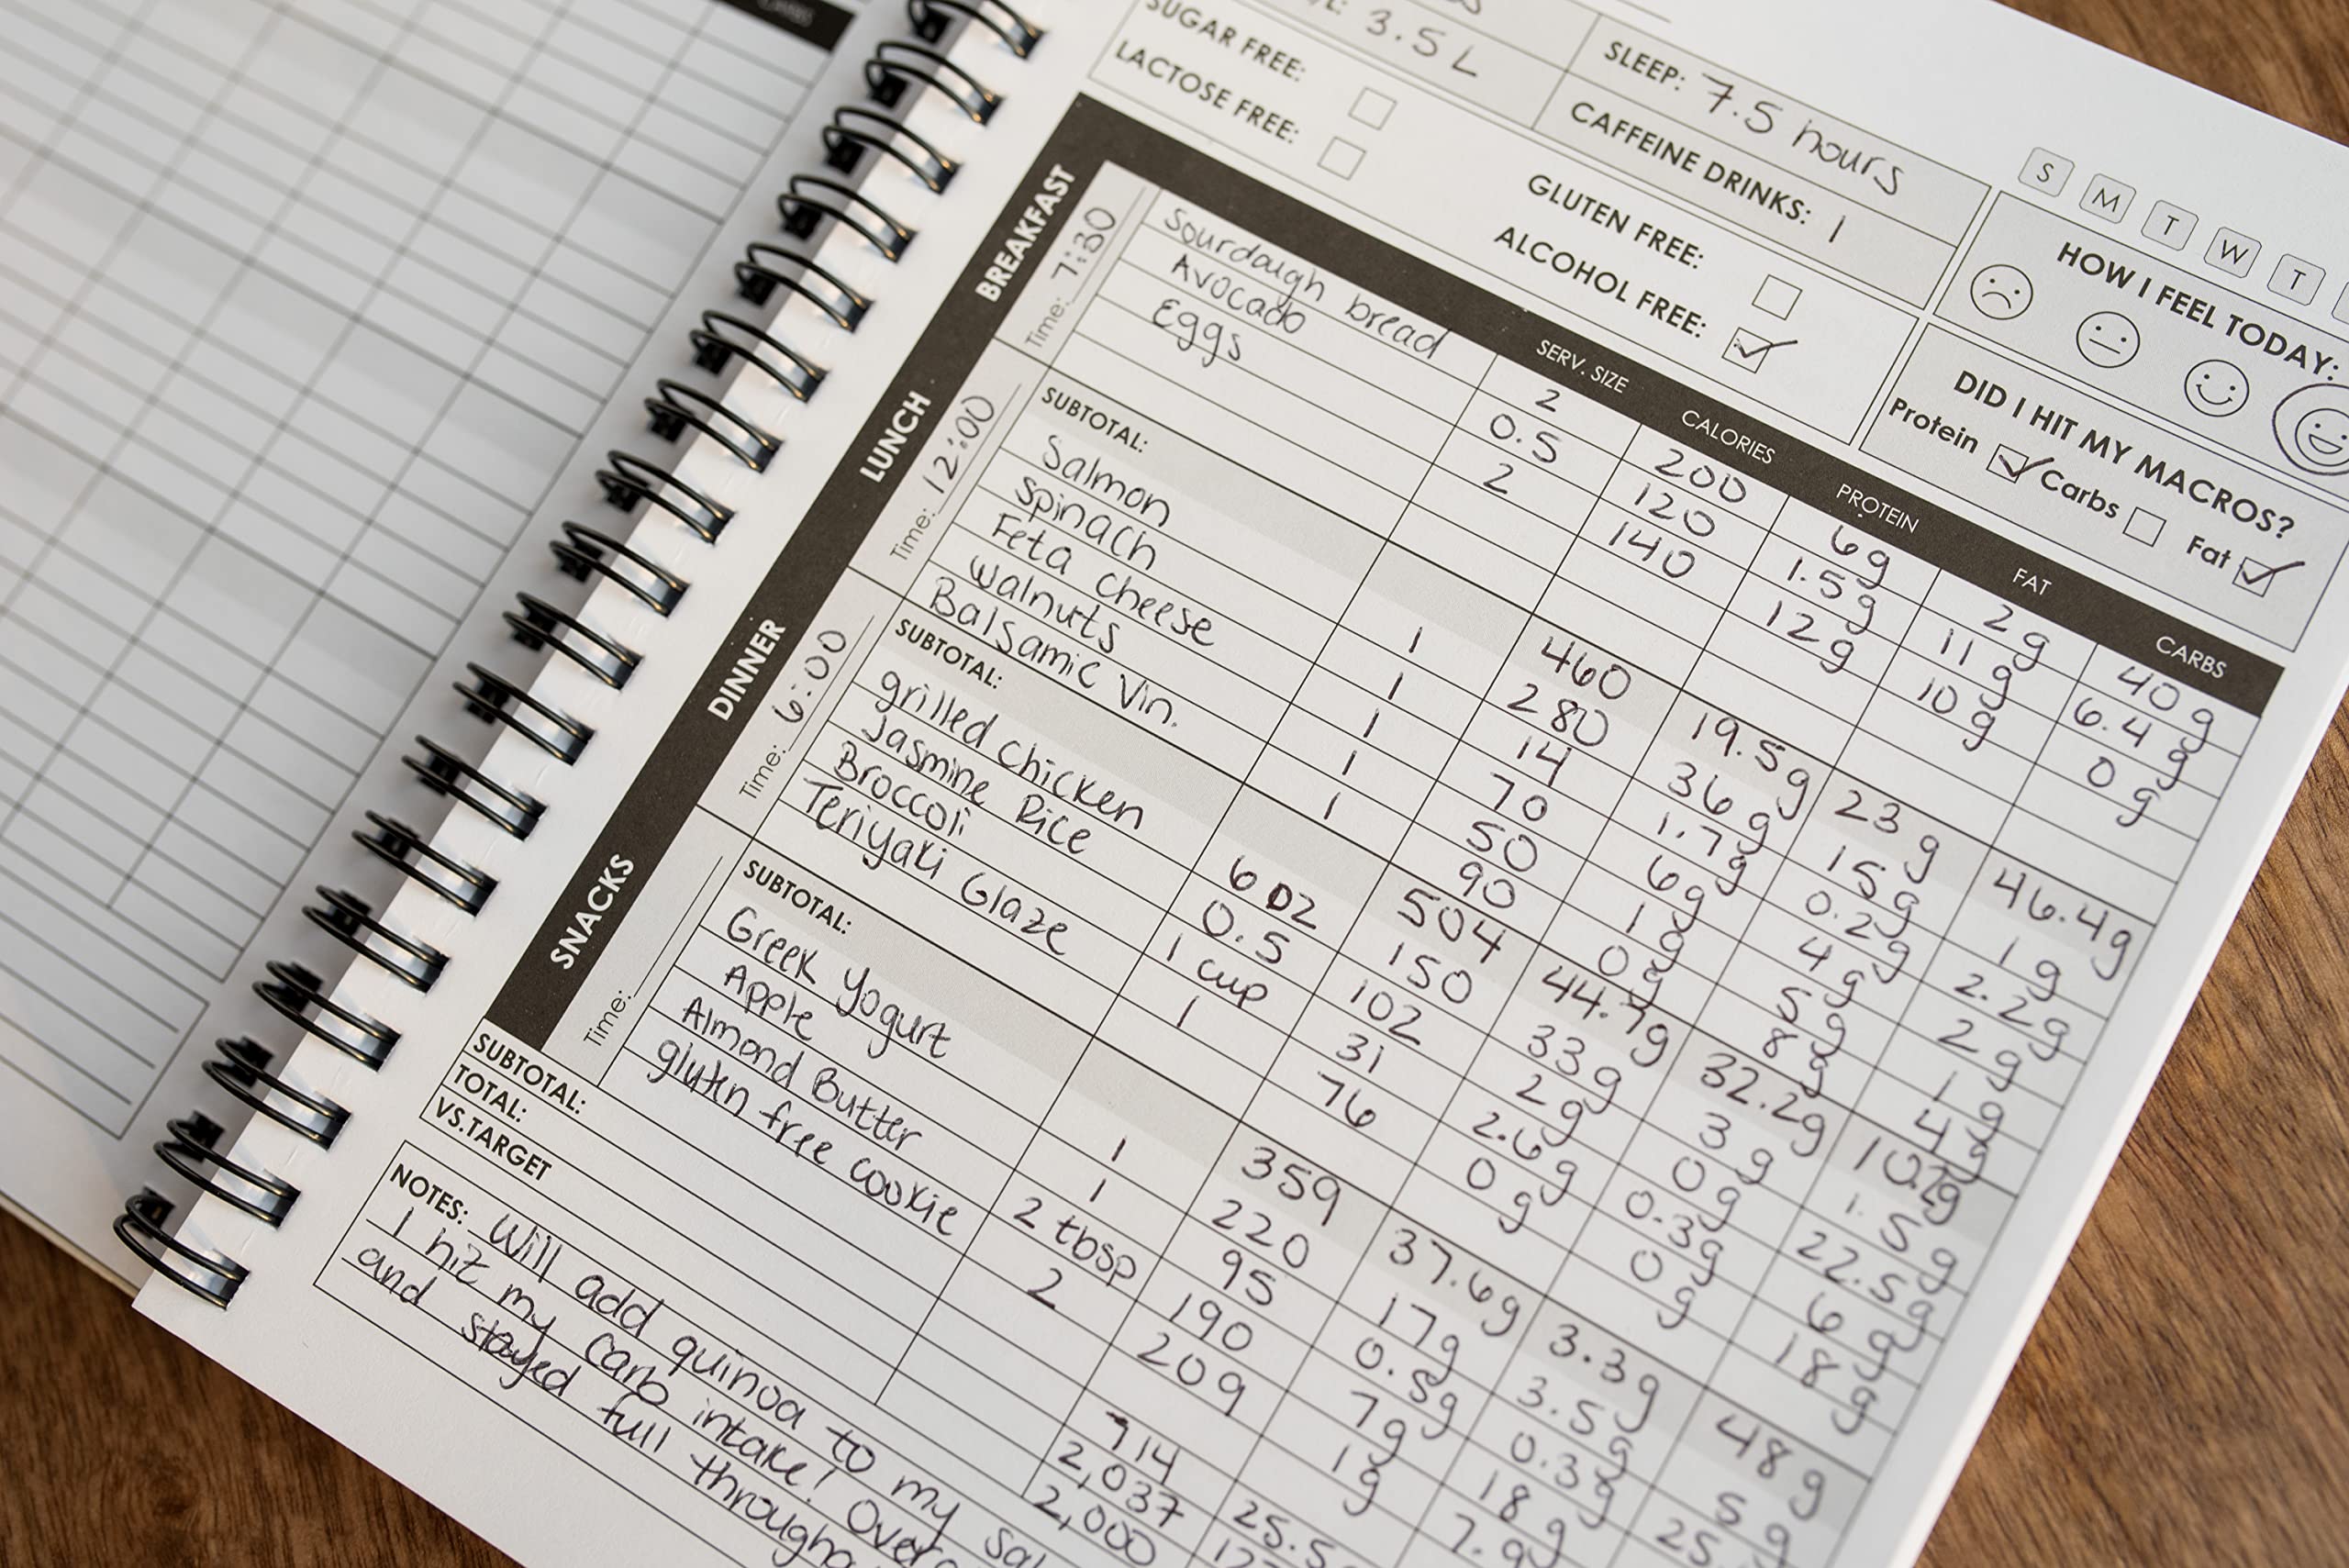 CARBS
3.5 L
SLEEP: 7.5 hours
SUGAR FREE:
LACTOSE FREE:
CAFFEINE DRINKS: 1
GLUTEN FREE:
ALCOHOL FREE:
S M T W T
HOW I FEEL TODAY:
DID I HIT MY MACROS?
Protein Carbs Fat
SERV. SIZE CALORIES PROTEIN FAT CARBS
BREAKFAST
Time: 7:30
Sourdough bread 2 200 6g 2g 40g
Avocado 0.5 120 1.5g 11g 6.4g
Eggs 2 140 12g 10g 0g
SUBTOTAL: 460 19.5g 23g 46.4g
LUNCH
Time: 12:00
Salmon 1 280 36g 15g 1g
Spinach 1 14 1.7g 0.2g 2.2g
Feta cheese 1 70 6g 4g 2g
Walnuts 1 50 1g 5g 1g
Balsamic Vin. 1 90 0g 8g 4g
SUBTOTAL: 504 44.7g 32.2g 10.2g
DINNER
Time: 6:00
grilled chicken 6 oz 150 33g 3g 1.5g
Jasmine Rice 0.5 102 2g 0g 22.5g
Broccoli 1 cup 31 2.6g 0.3g 6g
Teriyaki Glaze 1 76 0g 0g 18g
SUBTOTAL: 359 37.6g 3.3g 48g
SNACKS
Time:
Greek Yogurt 1 220 17g 3.5g 5g
Apple 1 95 0.5g 0.3g 25.
Almond Butter 2 tbsp 190 7g 18g
gluten free cookie 2 209 1g 7.9g
SUBTOTAL: 714 25.5
TOTAL: 2,037
VS.TARGET 2,000
NOTES: Will add quinoa to my
I hit my carb intake! Overa
and stayed full througho